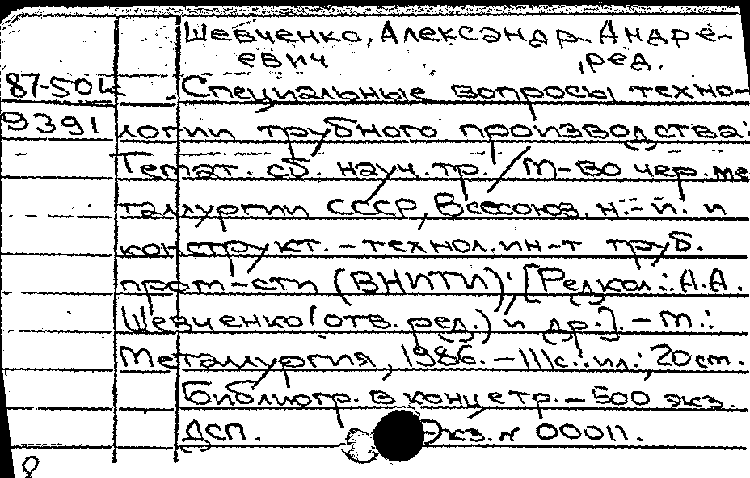 Шевченко, Александр Андре-
евич ,ред.
87-504 Специальные вопросы техно-
9391 логии трубного производства:
Темат. сб. науч. тр. / М-во чер. ме
таллургии СССР, Всесоюз. н.-и. и
конструкт.-технол. ин-т труб.
пром-сти (ВНИТИ); [Редкол.: А.А.
Шевченко (отв. ред.) и др.]. - М.:
Металлургия, 1986. - 111 с.: ил.; 20 см.
Библиогр. в конце тр. - 500 экз.
ДСП. Экз. № 00011.
8